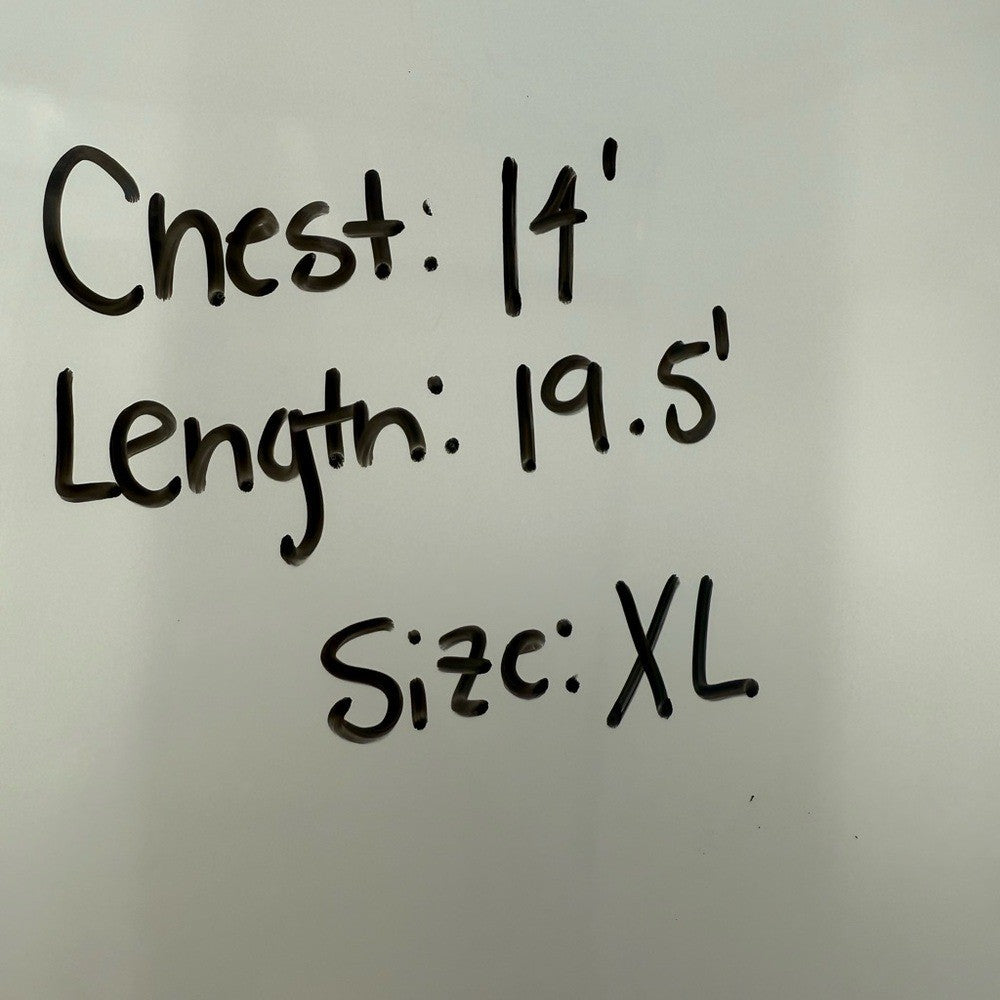 Chest: 14'
Length: 19.5'
Size: XL